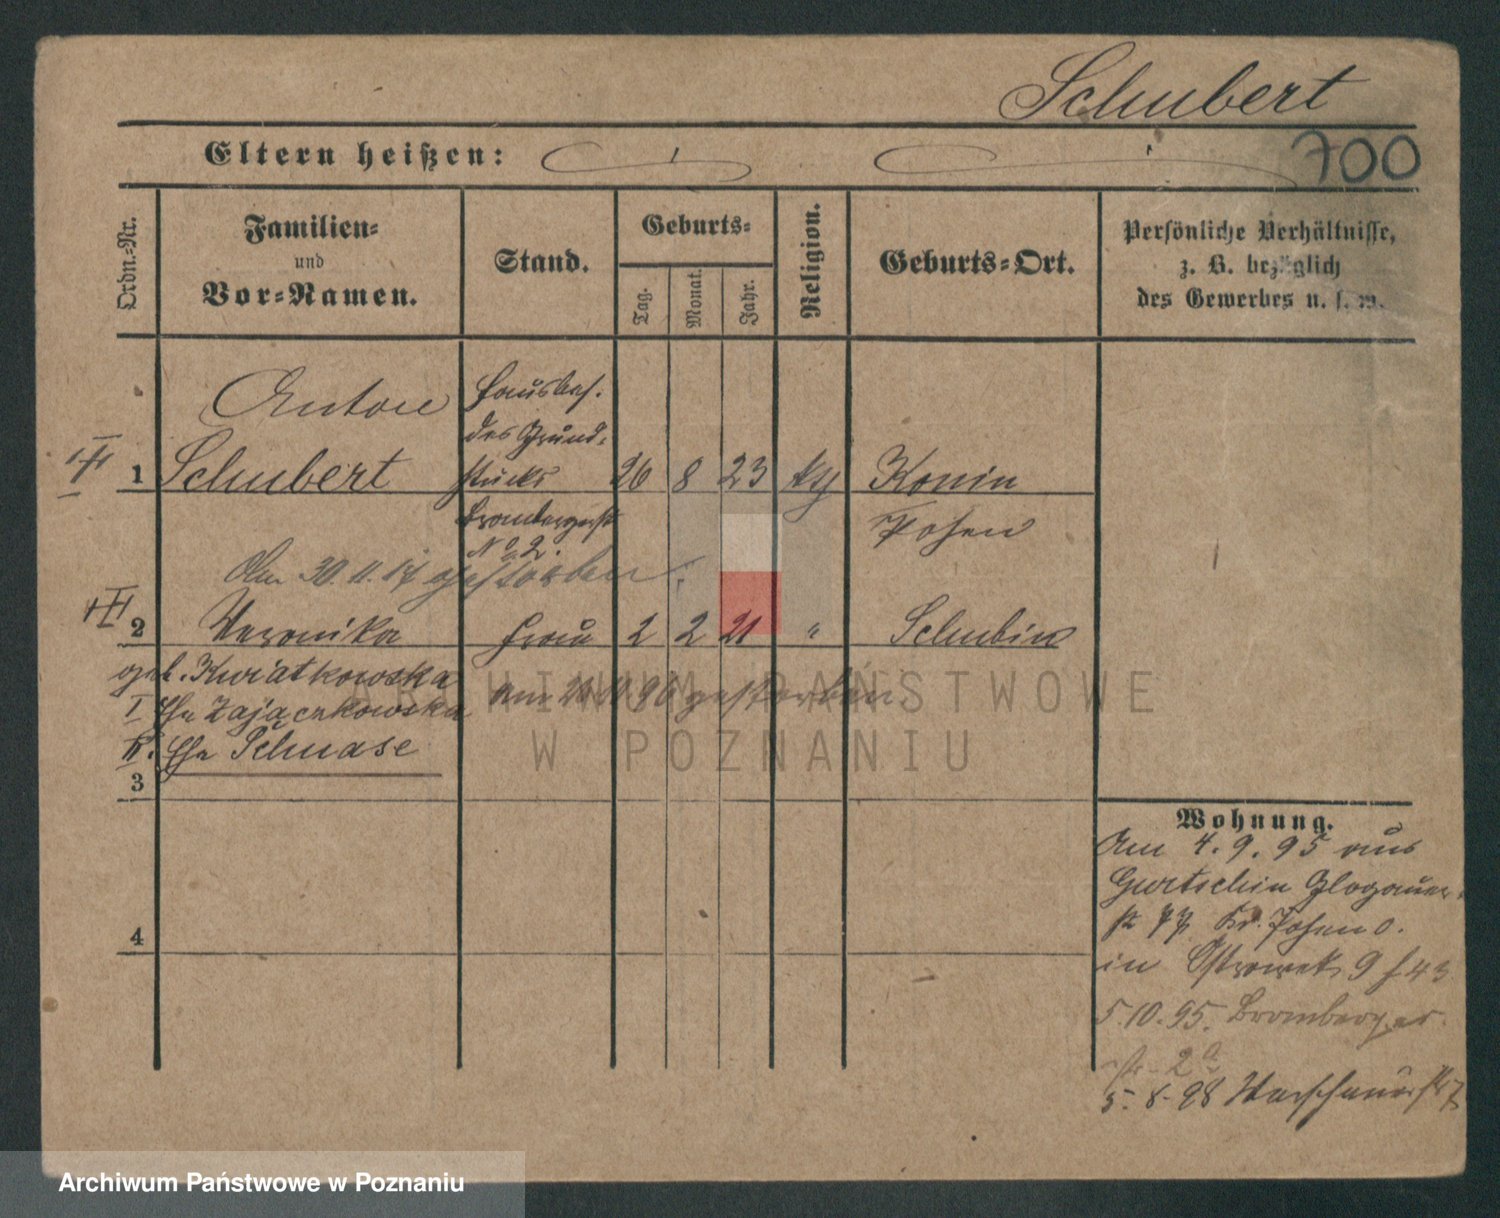 Schubert
700
Eltern heißen:
Ordn.-Nr.
Familien-
und
Vor-Namen.
Stand.
Geburts-
Tag.
Monat.
Jahr.
Religion.
Geburts-Ort.
Persönliche Verhältnisse,
z. B. bezüglich
des Gewerbes u. s. w.
Anton
Schubert
Hausbes.
des Grund-
stücks
Brombergerstr
No 2.
1
26 8 23 kth
Konin
Posen
Am 30.11.17 gestorben.
2
Veronika
Frau
2 2 21 "
Schubin
geb. Kwiatkowska
I Ehe Zajączkowska
II. Ehe Schnase
gestorben
3
4
Wohnung.
Am 4.9.95 aus
Gurtschin Glogauer-
str 77 Kr. Posen O.
in Ostrowek 9 f 43
5.10.95. Bromberger
str. 2a
5.8.98 Warschauerstr
ARCHIWUM PAŃSTWOWE
W POZNANIU
Archiwum Państwowe w Poznaniu